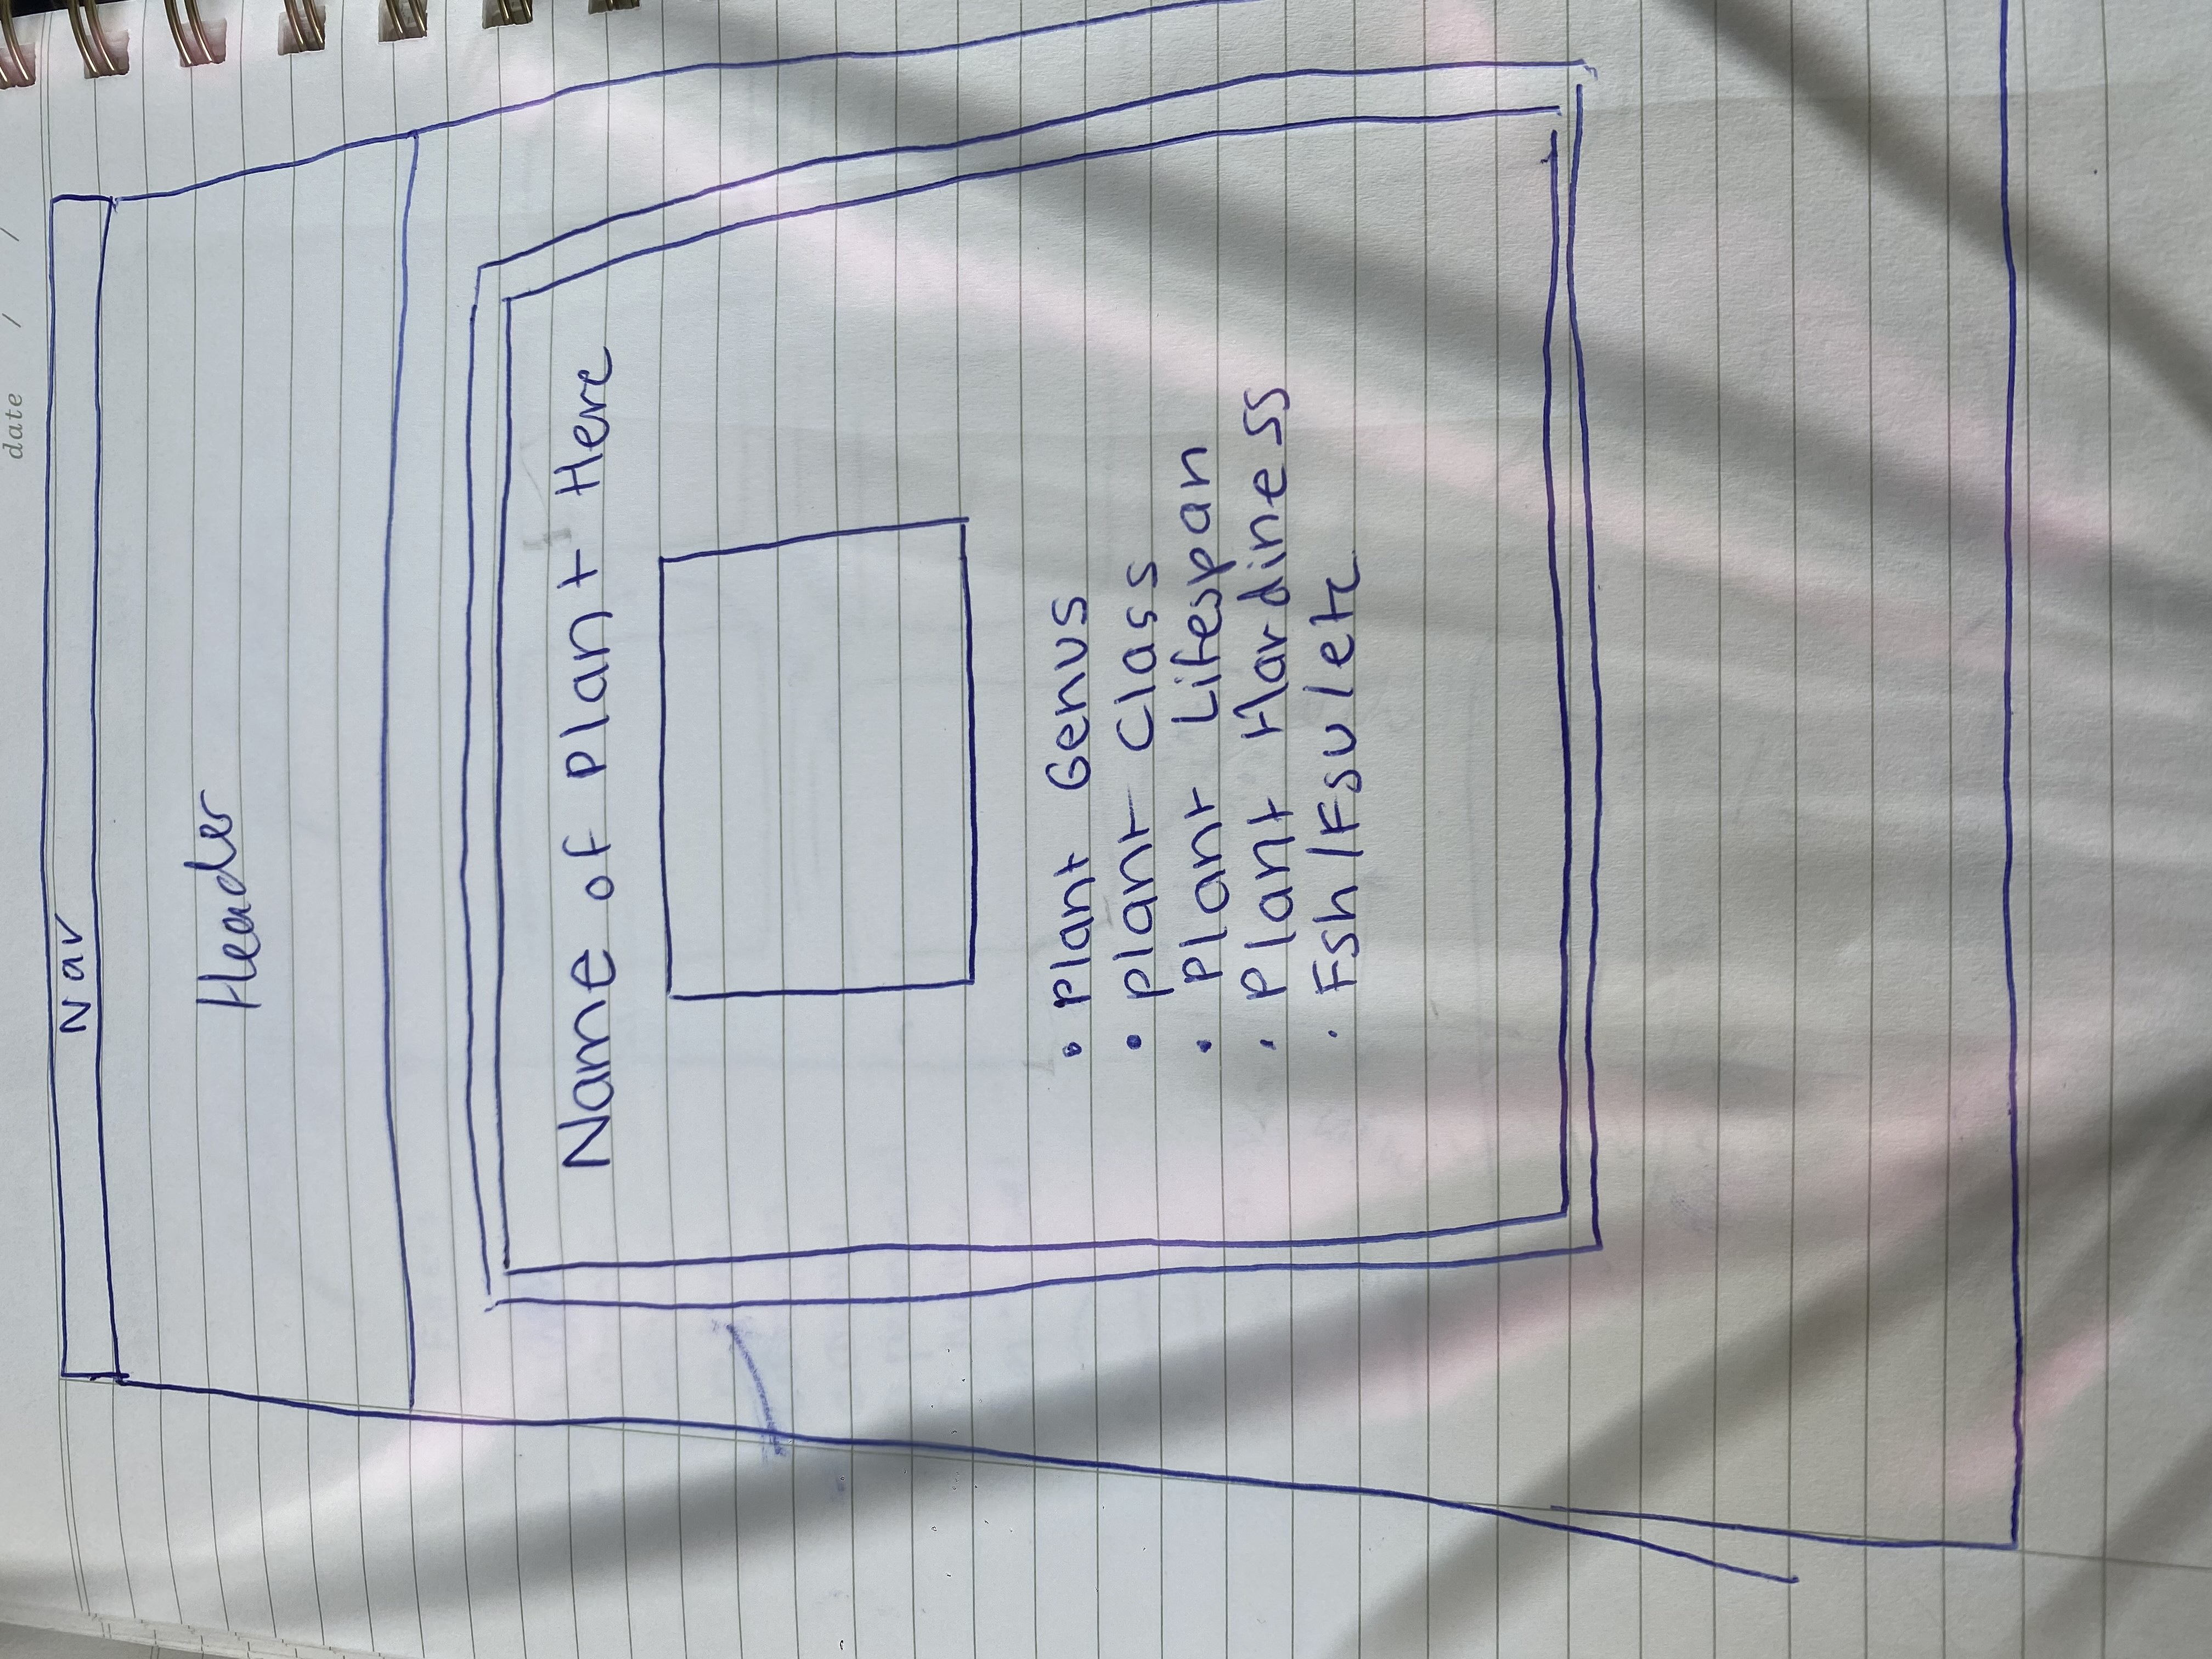 date / /
Nav
Header
Name of Plant Here
• Plant Genus
• plant Class
• Plant Lifespan
• Plant Hardiness
• Fsh/Fsu/etc